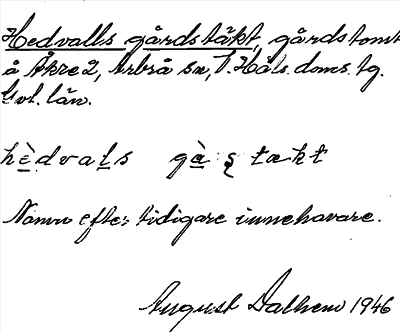 Hedvalls gårdstäkt, gårdstomt
å Åkre 2, Arbrå sn, V. Häls. doms. tg.
Gvl. län.
hèdvaḷs gàʂtækt
Namn efter tidigare innehavare.
August Dalhem 1946